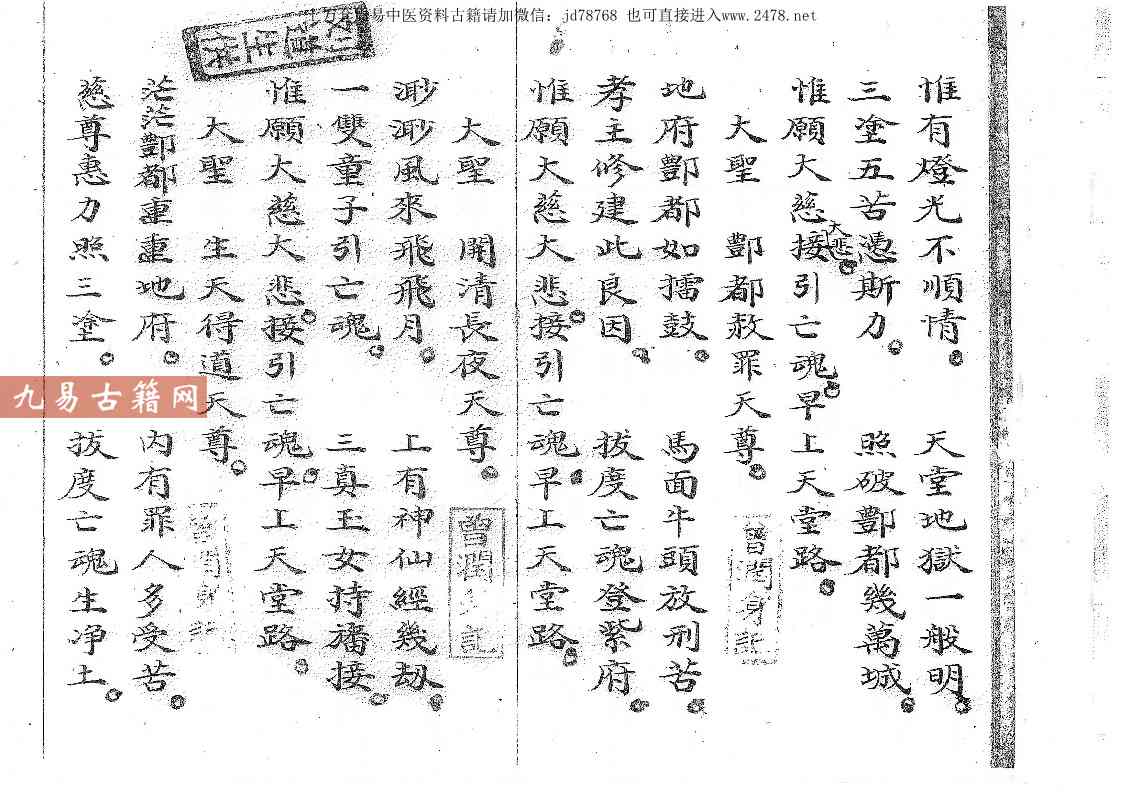 易中医资料古籍请加微信：jd78768 也可直接进入www.2478.net
惟有燈光不順情。天堂地獄一般明。
三塗五苦憑斯力。照破酆都幾萬城。
惟願大慈大悲。接引亡魂。早上天堂路。
大聖 酆都赦罪天尊。
曾潤身記
地府酆都如擂鼓。馬面牛頭放刑苦。
孝主修建此良因。拔度亡魂登紫府。
惟願大慈大悲。接引亡魂。早上天堂路。
大聖 開清長夜天尊。
曾潤 記
渺渺風來飛飛月。上有神仙經幾劫。
一雙童子引亡魂。三真玉女持旛接。
惟願大慈大悲。接引亡魂。早上天堂路。
大聖 生天得道天尊。
曾潤身記
茫茫酆都重重地府。內有罪人多受苦。
慈尊惠力照三塗。拔度亡魂生净土。
九易古籍网